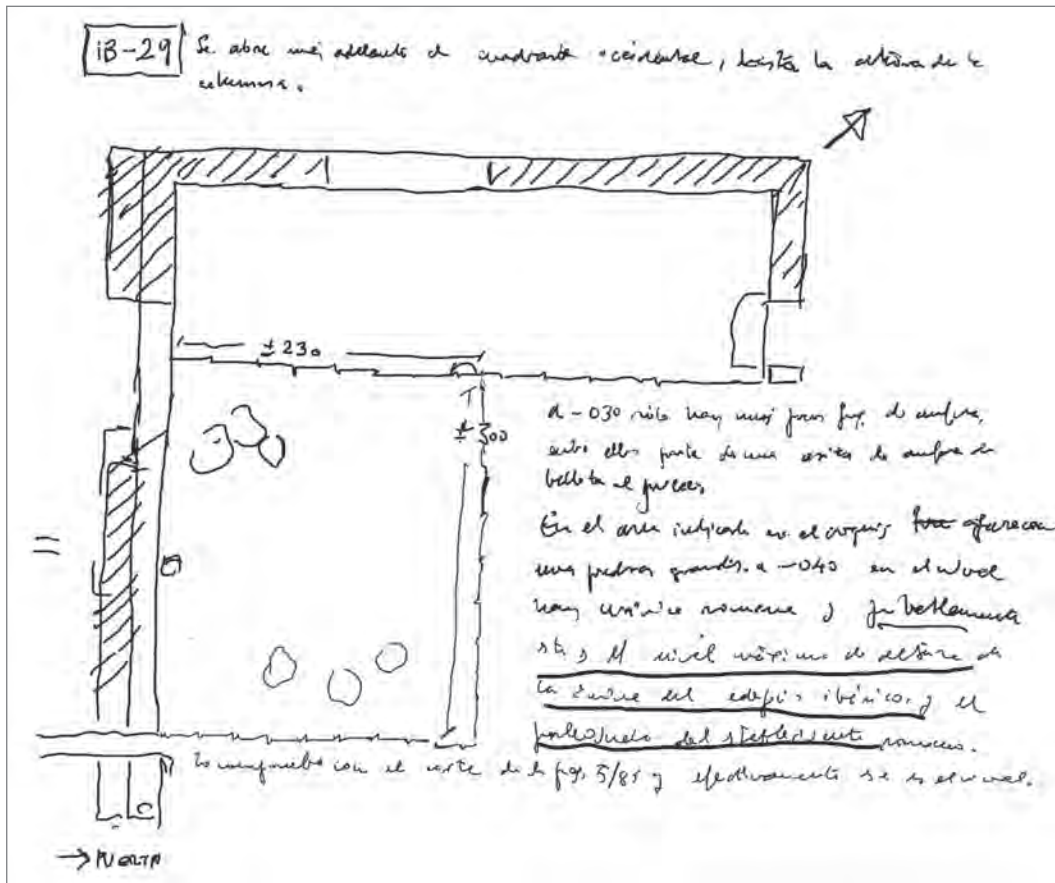 iB-29 Se abre más adelante el cuadrante occidental, hasta la altura de la
columna.
± 230
± 300
A -030 sólo hay unos pocos frag. de ánfora,
entre ellos parte de una de ánfora de
bellota al parecer.
En el area indicada en el croquis aparecen
unas piedras grandes. a -040 en el nivel
hay cerámica romana y probablemente
sea el nivel máximo de de
la del edificio ibérico, y el
del romano.
Lo compruebo con el corte de la pag. 5/85 y efectivamente se es el nivel.
→ PUERTA